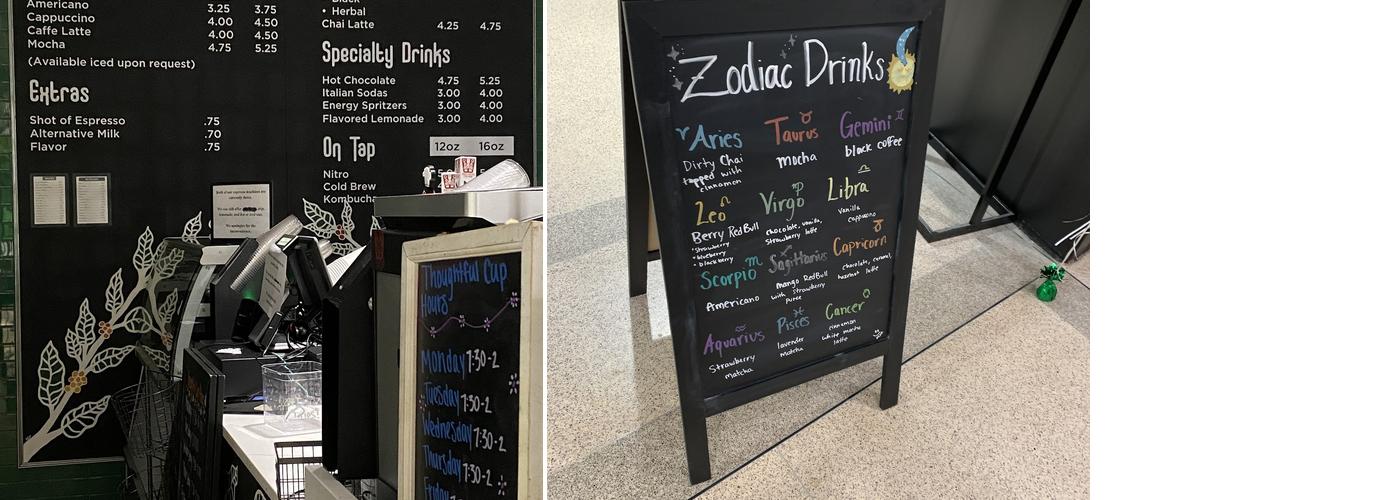 Americano 3.25 3.75
Cappuccino 4.00 4.50
Caffe Latte 4.00 4.50
Mocha 4.75 5.25
(Available iced upon request)
Extras
Shot of Espresso .75
Alternative Milk .70
Flavor .75
• Black
• Herbal
Chai Latte 4.25 4.75
Specialty Drinks
Hot Chocolate 4.75 5.25
Italian Sodas 3.00 4.00
Energy Spritzers 3.00 4.00
Flavored Lemonade 3.00 4.00
On Tap 12oz 16oz
Nitro
Cold Brew
Kombucha
Thoughtful Cup
Hours
Monday 7:30-2
Tuesday 7:30-2
Wednesday 7:30-2
Thursday 7:30-2
Friday
Zodiac Drinks
Aries
Dirty Chai
topped with
cinnamon
Taurus
mocha
Gemini
black coffee
Leo
Berry RedBull
strawberry
blueberry
blackberry
Virgo
chocolate, vanilla,
strawberry latte
Libra
vanilla
cappuccino
Scorpio
Americano
Sagittarius
mango RedBull
with strawberry
puree
Capricorn
chocolate, caramel,
hazelnut latte
Aquarius
Strawberry
matcha
Pisces
lavender
matcha
Cancer
cinnamon
white mocha
latte